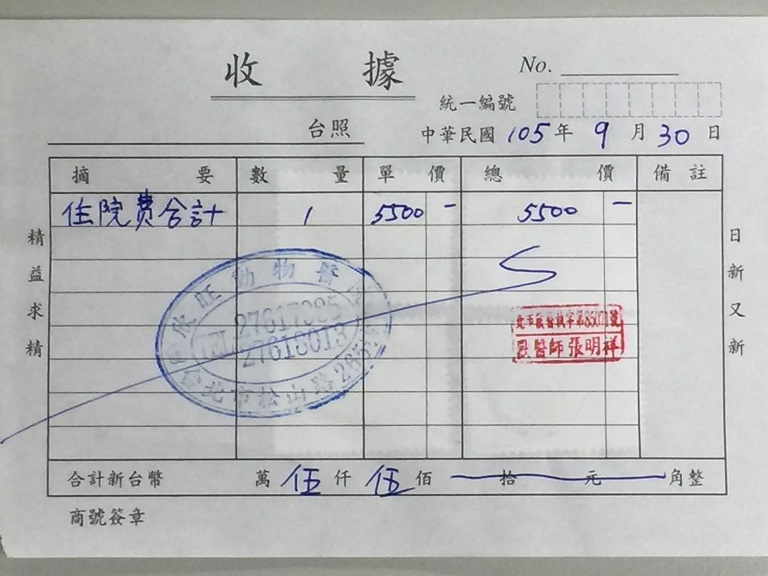 收據
No.
統一編號
台照
中華民國 105 年 9 月 30 日
摘要 數量 單價 總價 備註
住院費合計 1 5500 - 5500 -
精益求精
日新又新
旺動物醫
TEL 27617985
27618013
台北市松山路
獸醫師張明祥
合計新台幣 萬 伍 仟 伍 佰 拾 元 角整
商號簽章